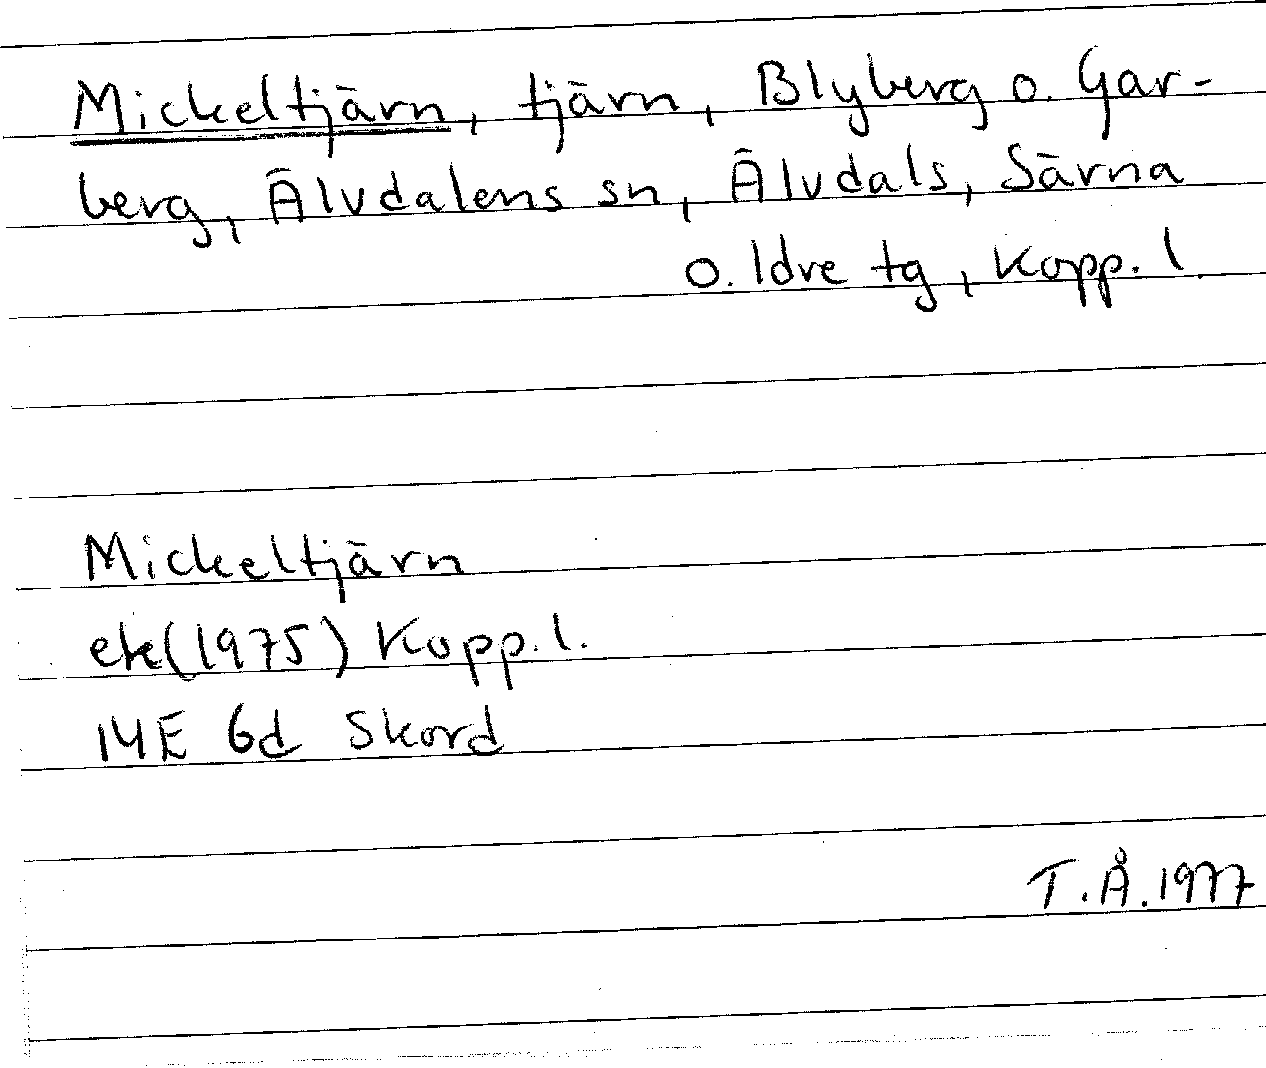 Mickeltjärn, tjärn, Blyberg o. Gar-
berg, Älvdalens sn, Älvdals, Särna
o. Idre tg, Kopp. l.
Mickeltjärn
ek(1975) Kopp. l.
14E 6d Skord
T.Å. 1977